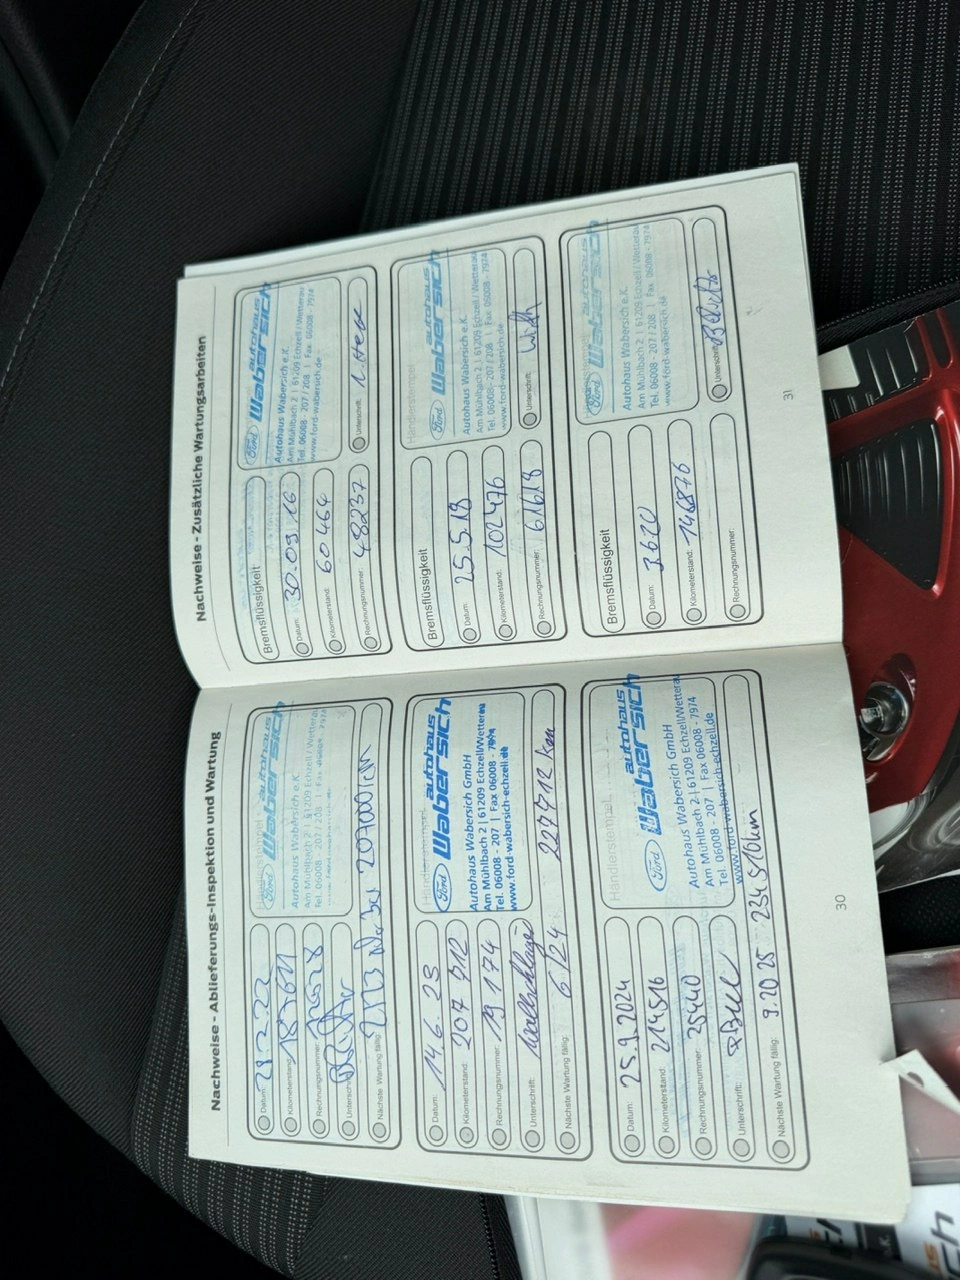 Nachweise - Ablieferungs-Inspektion und Wartung
Datum:
Kilometerstand:
Rechnungsnummer:
Unterschrift:
Nächste Wartung fällig:
207000km
Händlerstempel
Ford autohaus
Wabersich
Autohaus Wabersich e.K.
Am Mühlbach 2 | 61209 Echzell / Wetterau
Tel. 06008 - 207 / 208 | Fax 06008 - 7974
Datum: 14.6.23
Kilometerstand: 207 712
Rechnungsnummer: 19 174
Unterschrift:
Nächste Wartung fällig: 6/24 227712 km
Händlerstempel
Ford autohaus
Wabersich
Autohaus Wabersich GmbH
Am Mühlbach 2 | 61209 Echzell/Wetterau
Tel. 06008 - 207 | Fax 06008 - 7974
www.ford-wabersich-echzell.de
Datum: 25.9.2024
Kilometerstand: 214516
Rechnungsnummer: 25440
Unterschrift:
Nächste Wartung fällig: 9.2025 234516km
Händlerstempel
Ford autohaus
Wabersich
Autohaus Wabersich GmbH
Am Mühlbach 2 | 61209 Echzell/Wetterau
Tel. 06008 - 207 | Fax 06008 - 7974
www.ford-wabersich-echzell.de
30
Nachweise - Zusätzliche Wartungsarbeiten
Bremsflüssigkeit
Datum: 30.09.16
Kilometerstand: 60464
Rechnungsnummer: 48237
Ford autohaus
Wabersich
Autohaus Wabersich e.K.
Am Mühlbach 2 | 61209 Echzell / Wetterau
Tel. 06008 - 207 / 208 | Fax 06008 - 7974
www.ford-wabersich.de
Unterschrift:
Bremsflüssigkeit
Datum: 25.5.18
Kilometerstand: 102476
Rechnungsnummer: 61618
Händlerstempel
Ford autohaus
Wabersich
Autohaus Wabersich e.K.
Am Mühlbach 2 | 61209 Echzell / Wetterau
Tel. 06008 - 207 / 208 | Fax 06008 - 7974
www.ford-wabersich.de
Unterschrift:
Bremsflüssigkeit
Datum: 3.6.20
Kilometerstand: 146876
Rechnungsnummer:
Ford autohaus
Wabersich
Autohaus Wabersich e.K.
Am Mühlbach 2 | 61209 Echzell / Wetterau
Tel. 06008 - 207 / 208 | Fax 06008 - 7974
www.ford-wabersich.de
Unterschrift:
31